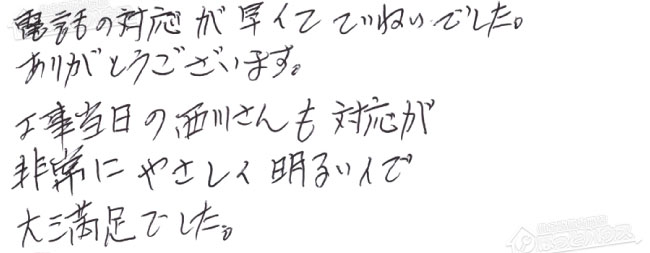 電話の対応が早くてていねいでした。
ありがとうございます。
工事当日の西川さんも対応が
非常にやさしく明るい人で
大満足でした。